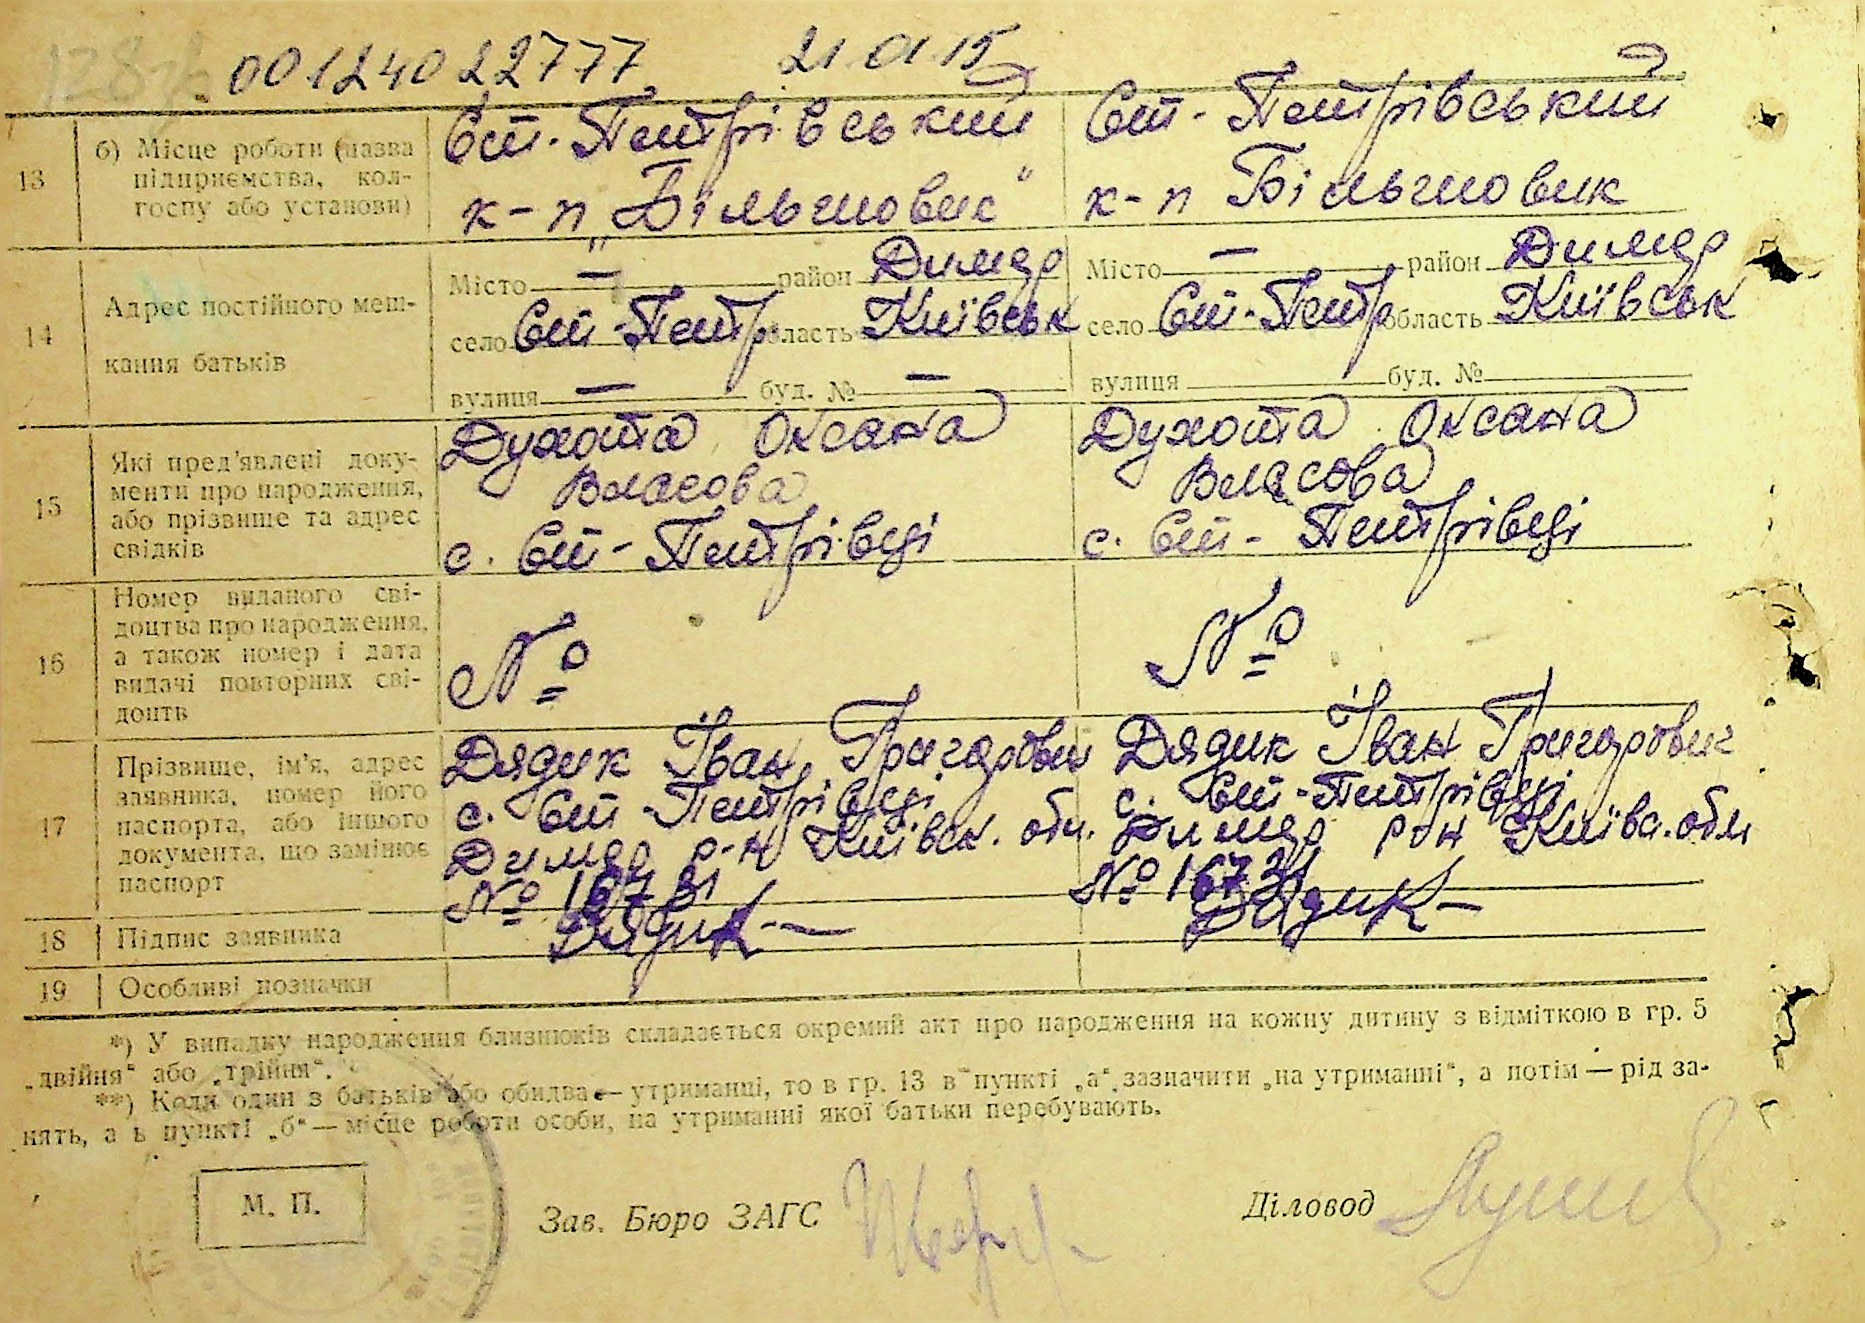 00124022777 21.01.15
13 б) Місце роботи (назва підприємства, кол-
госпу або установи)
Ст-Петрівський
к-п „Більшовик"
Ст-Петрівський
к-п Більшовик
14 Адрес постійного меш-
кання батьків
Місто — район Димер
село Ст-Петр область Київськ
вулиця — буд. № —
Місто — район Димер
село Ст-Петр область Київськ
вулиця буд. №
15 Які пред'явлені доку-
менти про народження,
або прізвище та адрес
свідків
Духота Оксана
Власова
с. Ст-Петрівці
Духота Оксана
Власова
с. Ст-Петрівці
16 Номер виданого сві-
доцтва про народження,
а також номер і дата
видачі повторних сві-
доцтв
№
№
17 Прізвище, ім'я, адрес
заявника, номер його
паспорта, або іншого
документа, що замінює
паспорт
Дядик Іван Григорович
с. Ст-Петрівці
Димер р-н Київск. обл.
№ 16731
Дядик Іван Григорович
с. Ст-Петрівці
Димер р-н Київс. обл
№ 16731
18 Підпис заявника
Дядик
Дядик
19 Особливі позначки
*) У випадку народження близнюків складається окремий акт про народження на кожну дитину з відміткою в гр. 5
„двійня“ або „трійня“.
**) Коли один з батьків або обидва — утриманці, то в гр. 13 в пункті „а“ зазначити „на утриманні“, а потім — рід за-
нять, а в пункті „б“ — місце роботи особи, на утриманні якої батьки перебувають.
М. П.
Зав. Бюро ЗАГС
Діловод